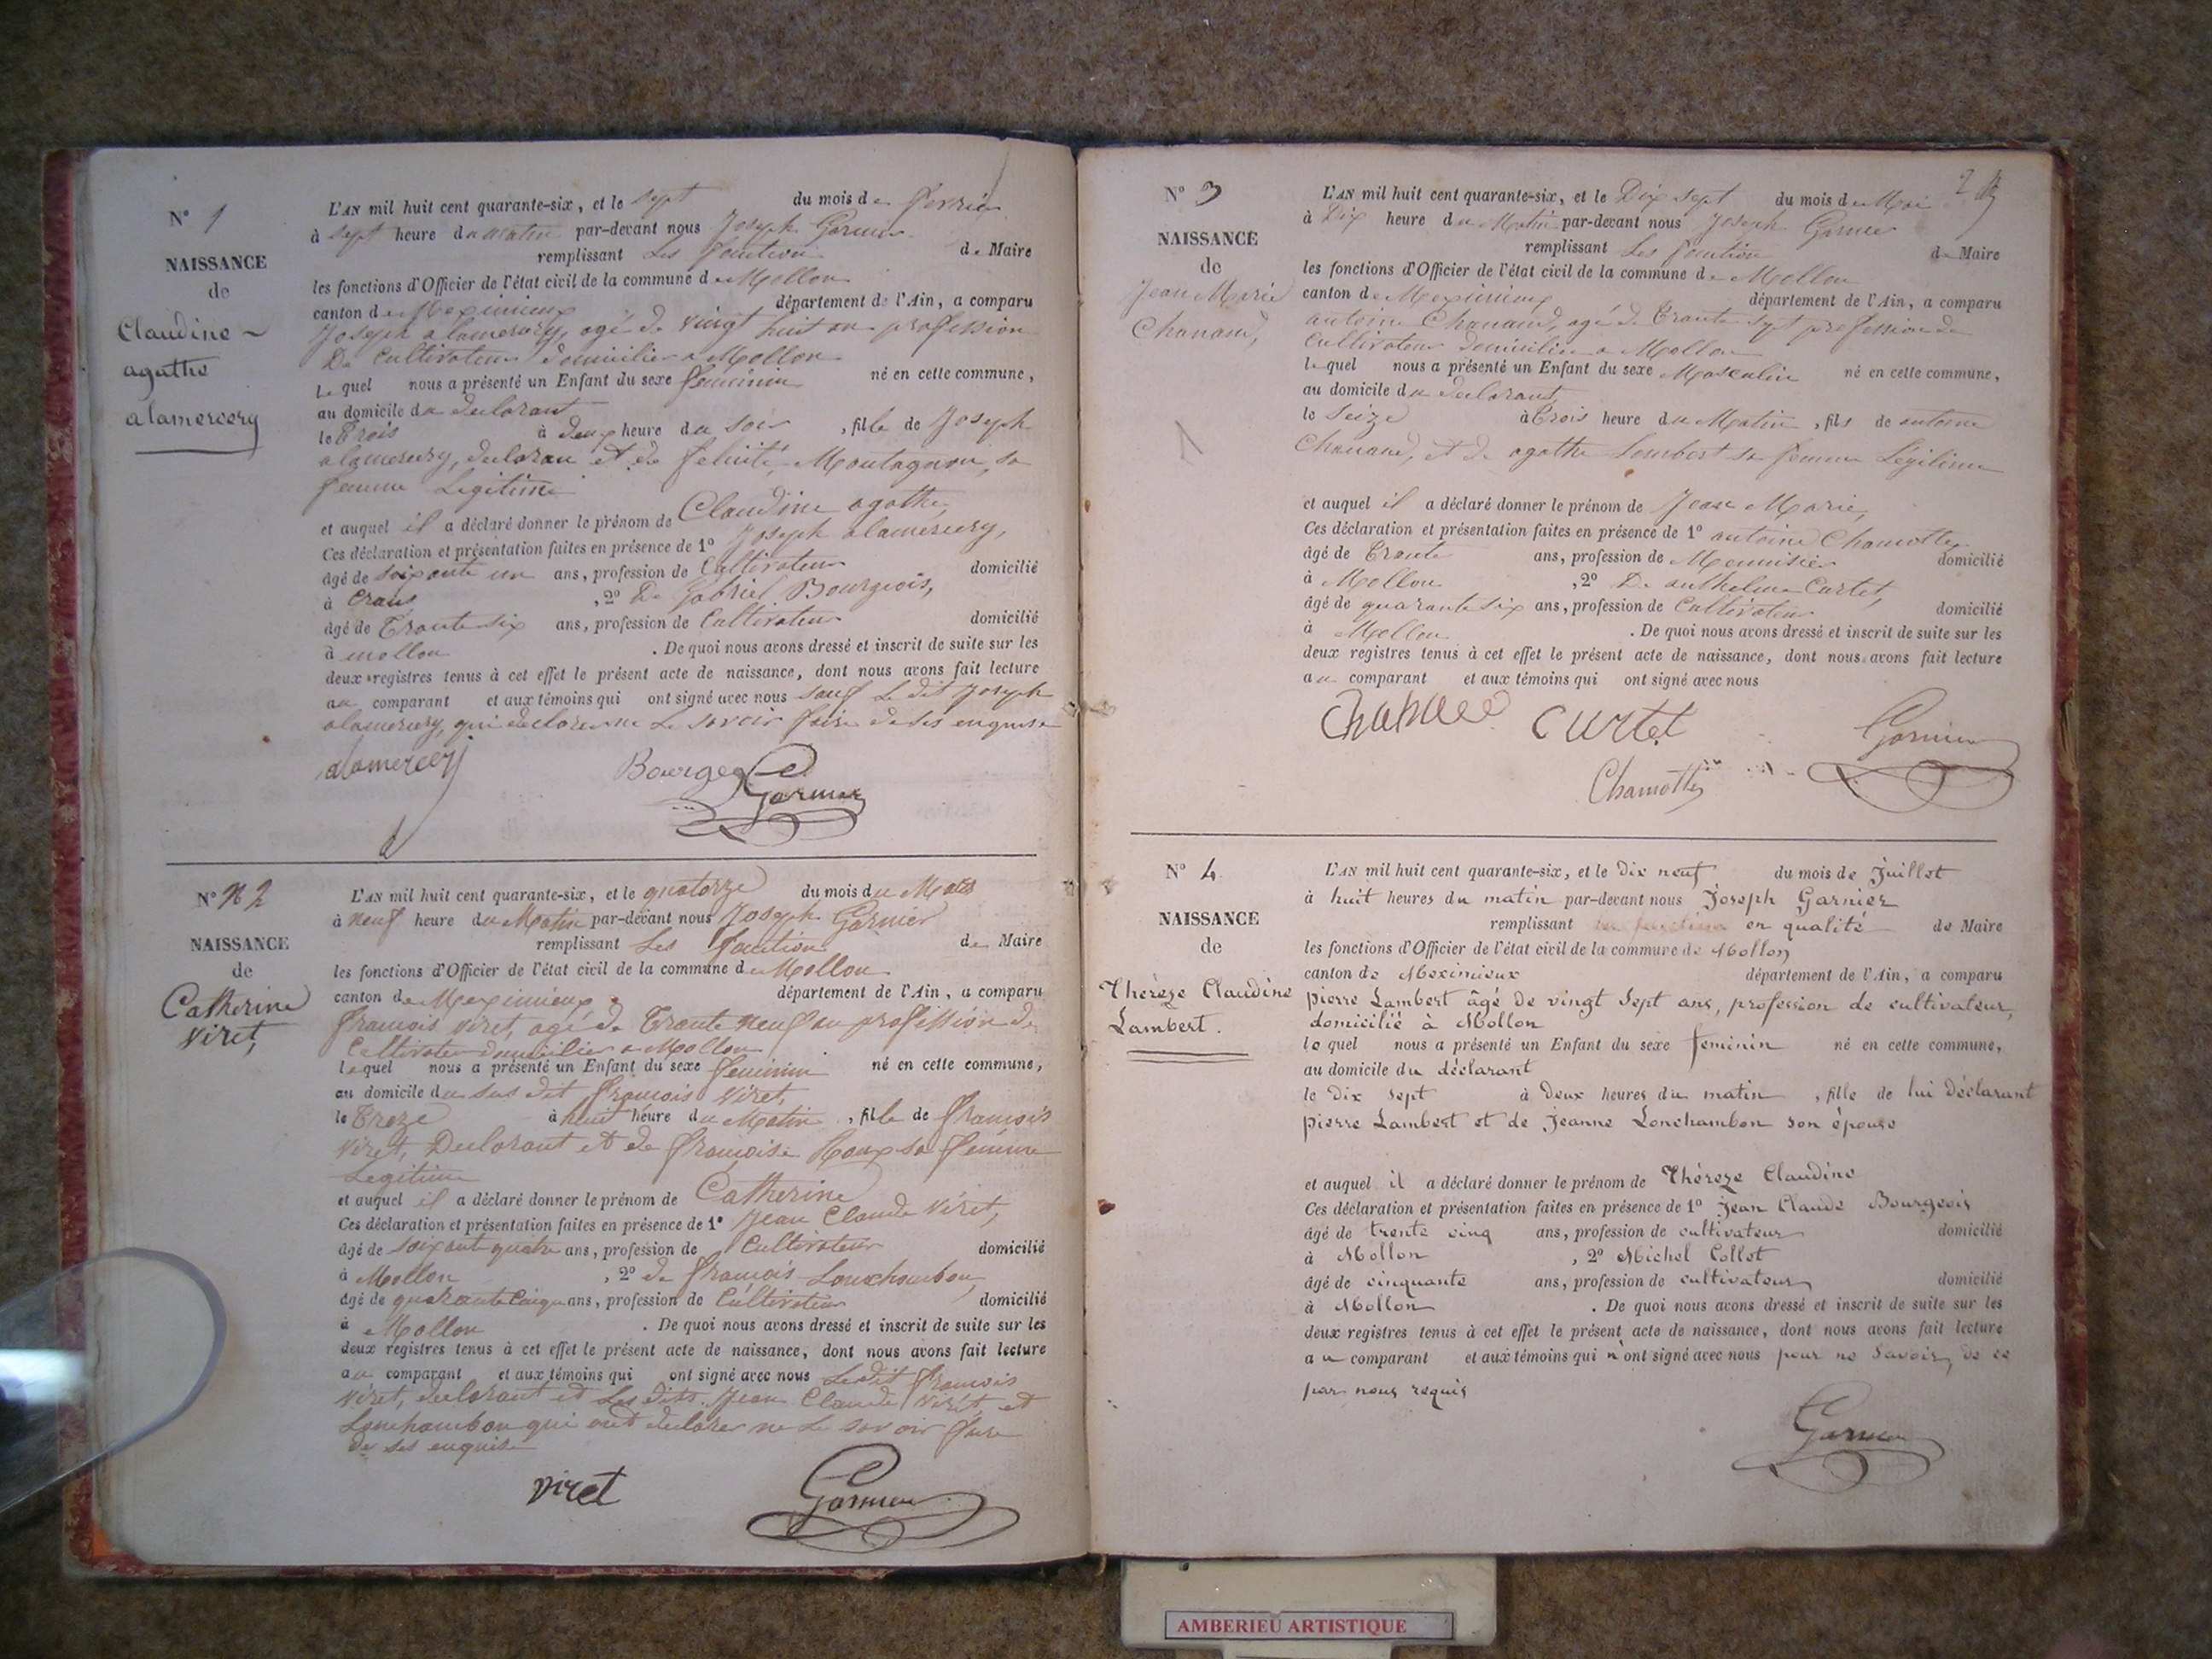 N° 1
NAISSANCE
de
Claudine
agathe
alamercery
L'AN mil huit cent quarante-six, et le sept du mois de fevrier
à sept heure du matin par-devant nous Joseph Garnier
remplissant les fonction de Maire
les fonctions d'Officier de l'état civil de la commune de Mollon
canton de Meximieux département de l'Ain, a comparu
Joseph alamercery, agé de vingt huit an profession
De Cultivateur domicilier a Mollon
Le quel nous a présenté un Enfant du sexe feminin né en cette commune,
au domicile du declarant
le Trois à deux heure du soir, fille de Joseph
alamercery, declaran et de felicité Montagnon, sa
femme Legitime
et auquel il a déclaré donner le prénom de Claudine agathe,
Ces déclaration et présentation faites en présence de 1° Joseph alamercery,
âgé de soixante un ans, profession de Cultivateur domicilié
à Crans, 2° De Gabriel Bourgeois,
âgé de Trante six ans, profession de Cultivateur domicilié
à mollon. De quoi nous avons dressé et inscrit de suite sur les
deux registres tenus à cet effet le présent acte de naissance, dont nous avons fait lecture
au comparant et aux témoins qui ont signé avec nous sauf Le dit Joseph
alamercery, qui declare ne Le savoir faire de ses enquise
alamercery Bourgeois
Garnier
N° N 2
NAISSANCE
de
Catherine
Viret,
L'AN mil huit cent quarante-six, et le quatorze du mois du Mars
à neuf heure du Matin par-devant nous Joseph Garnier
remplissant Les fonction de Maire
les fonctions d'Officier de l'état civil de la commune de Mollon
canton de Meximieux département de l'Ain, a comparu
francois Viret, agé de Trante neuf an profession de
Cultivateur domicilier a Mollon
lequel nous a présenté un Enfant du sexe feminin né en cette commune,
au domicile du sus dit francois Viret,
le Treze à heure du Matin, fille de francois
Viret, Declarant et de francoise Roux sa femme
Legitime
et auquel il a déclaré donner le prénom de Catherine
Ces déclaration et présentation faites en présence de 1° Jean Claude Viret,
âgé de soixant quatre ans, profession de Cultivateur domicilié
à Mollon, 2° de francois Lonchambon,
âgé de quarante Cinq ans, profession de Cultivateur domicilié
à Mollon. De quoi nous avons dressé et inscrit de suite sur les
deux registres tenus à cet effet le présent acte de naissance, dont nous avons fait lecture
au comparant et aux témoins qui ont signé avec nous Ledit francois
Viret, declarant et Les dits Jean Claude Viret et
Lonchambon qui ont declarer ne Le savoir faire
de ses enquise
viret Garnier
2
N° 3
NAISSANCE
de
Jean Marie
Chanand,
L'AN mil huit cent quarante-six, et le Dix sept du mois de Mai
à Dix heure du Matin par-devant nous Joseph Garnier
remplissant Les fonction de Maire
les fonctions d'Officier de l'état civil de la commune de Mollon
canton de Meximieux département de l'Ain, a comparu
antoine Chanand, agé de Trante sept profession de
Cultivateur domicilier a Mollon
lequel nous a présenté un Enfant du sexe Masculin né en cette commune,
au domicile du declarant,
le Seize à Trois heure du Matin, fils de antoine
Chanand, et de agathe Lambert sa femme Légitime
et auquel il a déclaré donner le prénom de Jean Marie,
Ces déclaration et présentation faites en présence de 1° antoine Chamotte,
âgé de Trante ans, profession de Menuisier domicilié
à Mollon, 2° De anthelme Curtet,
âgé de quarante six ans, profession de Cultivateur domicilié
à Mollon. De quoi nous avons dressé et inscrit de suite sur les
deux registres tenus à cet effet le présent acte de naissance, dont nous avons fait lecture
au comparant et aux témoins qui ont signé avec nous
Curtet Garnier
Chamotte
N° 4.
NAISSANCE
de
Thérèze Claudine
Lambert.
L'AN mil huit cent quarante-six, et le dix neuf du mois de Juillet
à huit heures du matin par-devant nous Joseph Garnier
remplissant en qualité de Maire
les fonctions d'Officier de l'état civil de la commune de Mollon
canton de Meximieux département de l'Ain, a comparu
pierre Lambert âgé de vingt Sept ans, profession de cultivateur,
domicilié à Mollon
lequel nous a présenté un Enfant du sexe feminin né en cette commune,
au domicile du déclarant
le Dix Sept à Deux heures du matin, fille de lui déclarant
pierre Lambert et de Jeanne Lonchambon son épouse
et auquel il a déclaré donner le prénom de Thérèze Claudine
Ces déclaration et présentation faites en présence de 1° Jean Claude Bourgeois
âgé de trente cinq ans, profession de cultivateur domicilié
à Mollon, 2° Michel Collet
âgé de cinquante ans, profession de cultivateur domicilié
à Mollon. De quoi nous avons dressé et inscrit de suite sur les
deux registres tenus à cet effet le présent acte de naissance, dont nous avons fait lecture
au comparant et aux témoins qui n'ont signé avec nous pour ne Savoir, de ce
par nous requis
Garnier
AMBERIEU ARTISTIQUE